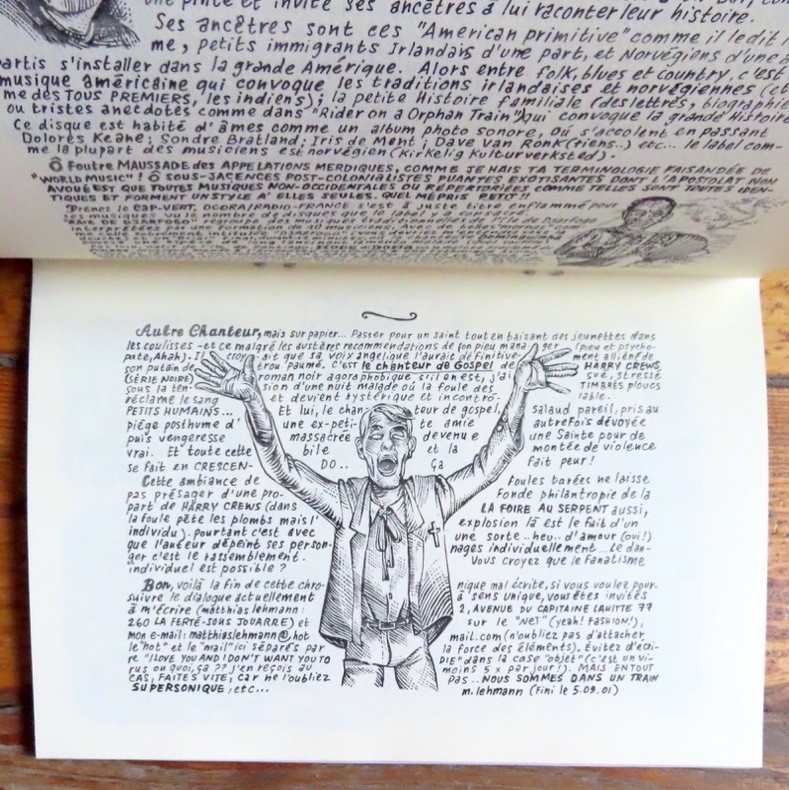 une pinte et invite ses ancêtres à lui raconter leur histoire.
Ses ancêtres sont ces "American primitive" comme il le dit
me, petits immigrants Irlandais d'une part, et Norvégiens d'une
partis s'installer dans la grande Amérique. Alors entre folk, blues et country, c'est
musique américaine qui convoque les traditions irlandaises et norvégiennes (et
me des TOUS PREMIERS, les indiens); la petite Histoire familiale (des lettres, biographie
ou tristes anecdotes comme dans "Rider on a Orphan Train") qui convoque la grande Histoire
Ce disque est habité d'âmes comme un album photo sonore, où s'accolent en passant
Dolorès Keane; Sondre Bratland; Iris de Ment; Dave Van Ronk (tiens..) etc... le label com-
me la plupart des musiciens est norvégien (Kirkelig Kulturverksted).
Ô Foutre MAUSSADE des APPELATIONS MERDIQUES, COMME JE HAIS TA TERMINOLOGIE FAISANDÉE DE
"WORLD MUSIC"! Ô SOUS-JACENCES POST-COLONIALISTES PUANTES EXOTISANTES DONT L'APOSTOLAT NON
AVOUÉ EST QUE TOUTES MUSIQUES NON-OCCIDENTALES OU RÉPERTORIÉES COMME TELLES SONT TOUTES IDEN-
TIQUES ET FORMENT UN STYLE À ELLES SEULES. QUEL MÉPRIS PETIT!!
Prenez le CAP-VERT, OCORA/RADIO-FRANCE s'est à juste titre enflammé pour
ses musiques vu le nombre de disques que le label y a consacré.
interprétées par une formation de 10 musiciens.
Autre Chanteur, mais sur papier... Passer pour un saint tout en baisant des jeunettes dans
les coulisses - et ce malgré les austères recommandations de son pieu mana- ger (pieu et psycho-
pate, Ahah). Il croy- ait que sa voix angélique l'aurait définitive- ment aliéné de
son putain de trou paumé. C'est le chanteur de Gospel de HARRY CREWS
(SÉRIE NOIRE) roman noir agoraphobique s'il en est, j'ai sué, stressé
sous la ten- sion d'une nuit malade où la foule des TIMBRÉS ploucs
réclame le sang et devient hystérique et incontrô- lable.
PETITS HUMAINS... Et lui, le chan- teur de gospel, salaud pareil, pris au
piège posthume d' une ex-peti- te amie autrefois dévoyée
puis vengeresse massacrée devenue une Sainte pour de
vrai. Et toute cette bile et la montée de violence
se fait en CRESCEN- DO.. Ça fait peur!
Cette ambiance de foules tarées ne laisse
pas présager d'une pro- fonde philantropie de la
part de HARRY CREWS (dans LA FOIRE AU SERPENT aussi,
la foule pète les plombs mais l' explosion là est le fait d'un
individu). pourtant c'est avec une sorte .. heu.. d'amour (oui!)
que l'auteur dépeint ses person- nages individuellement... Le dan-
ger c'est le rassemblement. Vous croyez que le fanatisme
individuel est possible?
Bon, voilà la fin de cette chro- nique mal écrite, si vous voulez pour-
suivre le dialogue actuellement à sens unique, vous êtes invités
à m'écrire (matthias lehmann: 2, AVENUE DU CAPITAINE LAHITTE 77
260 LA FERTÉ-SOUS JOUARRE) et sur le "NET" (yeah! FASHION!),
mon e-mail: matthiaslehmann@hot mail.com (n'oubliez pas d'attacher
le "hot" et le "mail" ici séparés par la force des éléments). Évitez d'écri-
re "I LOVE YOU AND I DON'T WANT YOU TO DIE" dans la case "objet" (c'est un vi-
rus ou quoi, ça?? J'en reçois au moins 5 x par jour!). MAIS EN TOUT
CAS, FAITES VITE, car ne l'oubliez pas.. NOUS SOMMES DANS UN TRAIN
SUPERSONIQUE, etc... m. lehmann (Fini le 5.09.01)